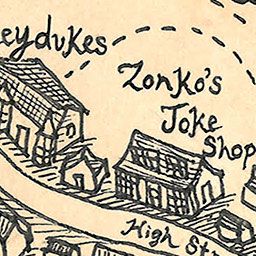 eydukes
Zonko's
Joke
Shop
High Str